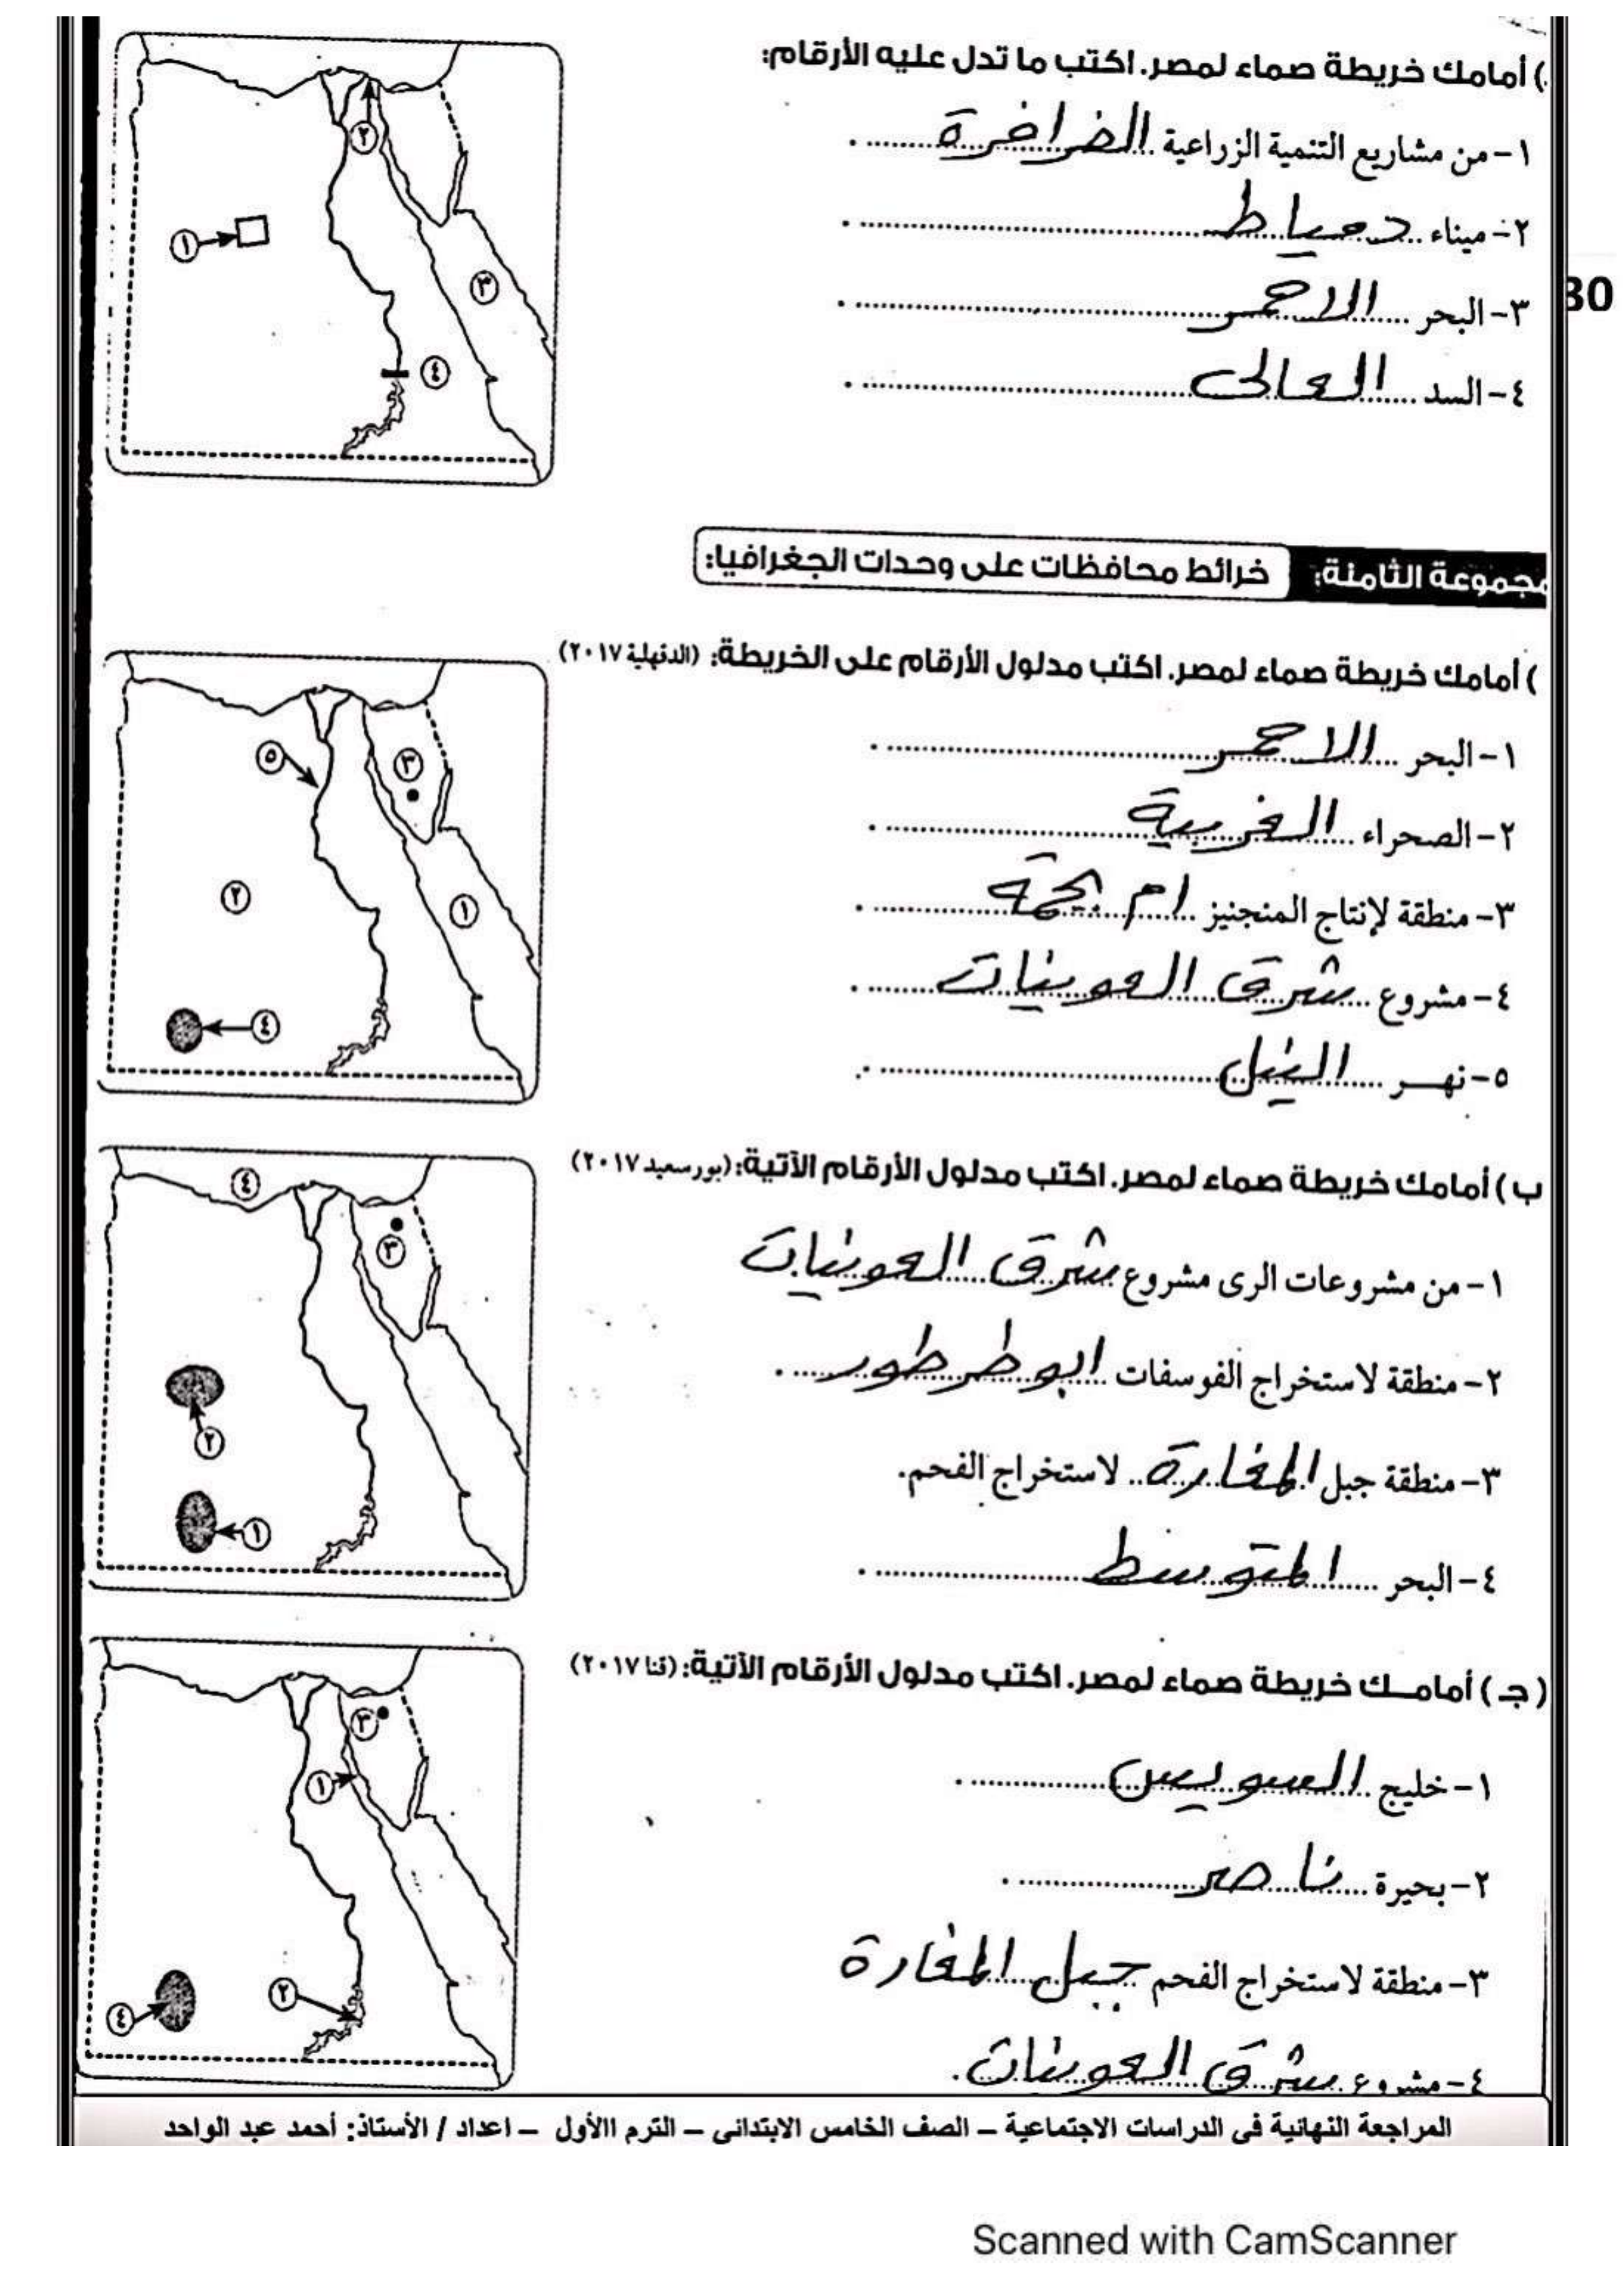 ) أمامك خريطة صماء لمصر. اكتب ما تدل عليه الأرقام:
١- من مشاريع التنمية الزراعية الفرافرة
٢- ميناء دمياط
٣- البحر الاحمر
٤- السد العالى
30
مجموعة الثامنة: خرائط محافظات على وحدات الجغرافيا:
) أمامك خريطة صماء لمصر. اكتب مدلول الأرقام على الخريطة: (الدقهلية ٢٠١٧)
١- البحر الاحمر
٢- الصحراء الغربية
٣- منطقة لإنتاج المنجنيز ام بجمة
٤- مشروع شرق العوينات
٥- نهر النيل
ب) أمامك خريطة صماء لمصر. اكتب مدلول الأرقام الآتية: (بورسعيد ٢٠١٧)
١- من مشروعات الرى مشروع شرق العوينات
٢- منطقة لاستخراج الفوسفات ابو طرطور
٣- منطقة جبل المغارة لاستخراج الفحم.
٤- البحر المتوسط
(جـ) أمامك خريطة صماء لمصر. اكتب مدلول الأرقام الآتية: (قنا ٢٠١٧)
١- خليج السويس
٢- بحيرة ناصر
٣- منطقة لاستخراج الفحم جبل المغارة
٤- مشروع شرق العوينات.
المراجعة النهائية فى الدراسات الاجتماعية – الصف الخامس الابتدائى – الترم االأول – اعداد / الأستاذ: أحمد عبد الواحد
Scanned with CamScanner
١
٢
٣
٤
١
٢
٣
٤
٥
١
٢
٣
٤
١
٢
٣
٤